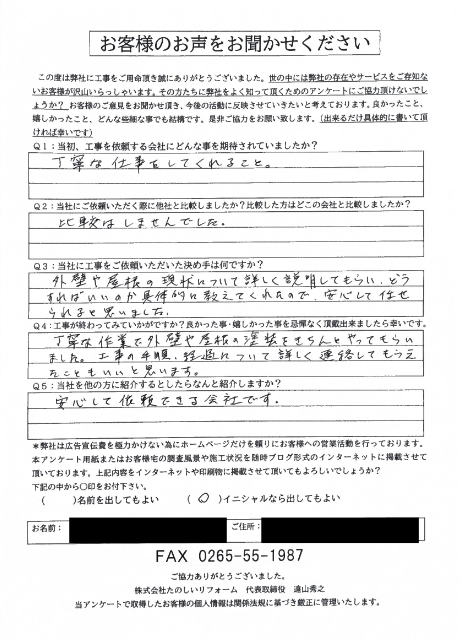 お客様のお声をお聞かせください
この度は弊社に工事をご用命頂き誠にありがとうございました。世の中には弊社の存在やサービスをご存知な
いお客様が沢山いらっしゃいます。その方たちに弊社をよく知って頂くためのアンケートにご協力頂けないでし
ょうか？お客様のご意見をお聞かせ頂き、今後の活動に反映させていきたいと考えております。良かったこと、
嬉しかったこと、どんな些細な事でも結構です。是非ご協力をお願い致します。（出来るだけ具体的に書いて頂
ければ幸いです）
Q１：当初、工事を依頼する会社にどんな事を期待されていましたか？
丁寧な仕事をしてくれること。
Q２：当社にご依頼いただく際に他社と比較しましたか？比較した方はどこの会社と比較しましたか？
比較はしませんでした。
Q３：当社に工事をご依頼いただいた決め手は何ですか？
外壁や屋根の現状について詳しく説明してもらい、どう
すればいいのか具体的に教えてくれたので、安心して任せ
られると思いました。
Q４：工事が終わってみていかがですか？良かった事・嬉しかった事を忌憚なく頂戴出来ましたら幸いです。
丁寧な作業で外壁や屋根の塗装をきちんとやってもらい
ました。工事の手順、経過について詳しく連絡してもらえ
たこともいいと思います。
Q５：当社を他の方に紹介するとしたらなんと紹介しますか？
安心して依頼できる会社です。
＊弊社は広告宣伝費を極力かけない為にホームページだけを頼りにお客様への営業活動を行っております。
本アンケート用紙またはお客様宅の調査風景や施工状況を随時ブログ形式のインターネットに掲載させて
頂いております。上記内容をインターネットや印刷物に掲載させて頂いてもよろしいでしょうか？
下記の中から○印をお付下さい。
（　　）名前を出してもよい　　（○）イニシャルなら出してもよい
お名前：　　ご住所：
FAX 0265-55-1987
ご協力ありがとうございました。
株式会社たのしいリフォーム　代表取締役　遠山秀之
当アンケートで取得したお客様の個人情報は関係法規に基づき厳正に管理いたします。